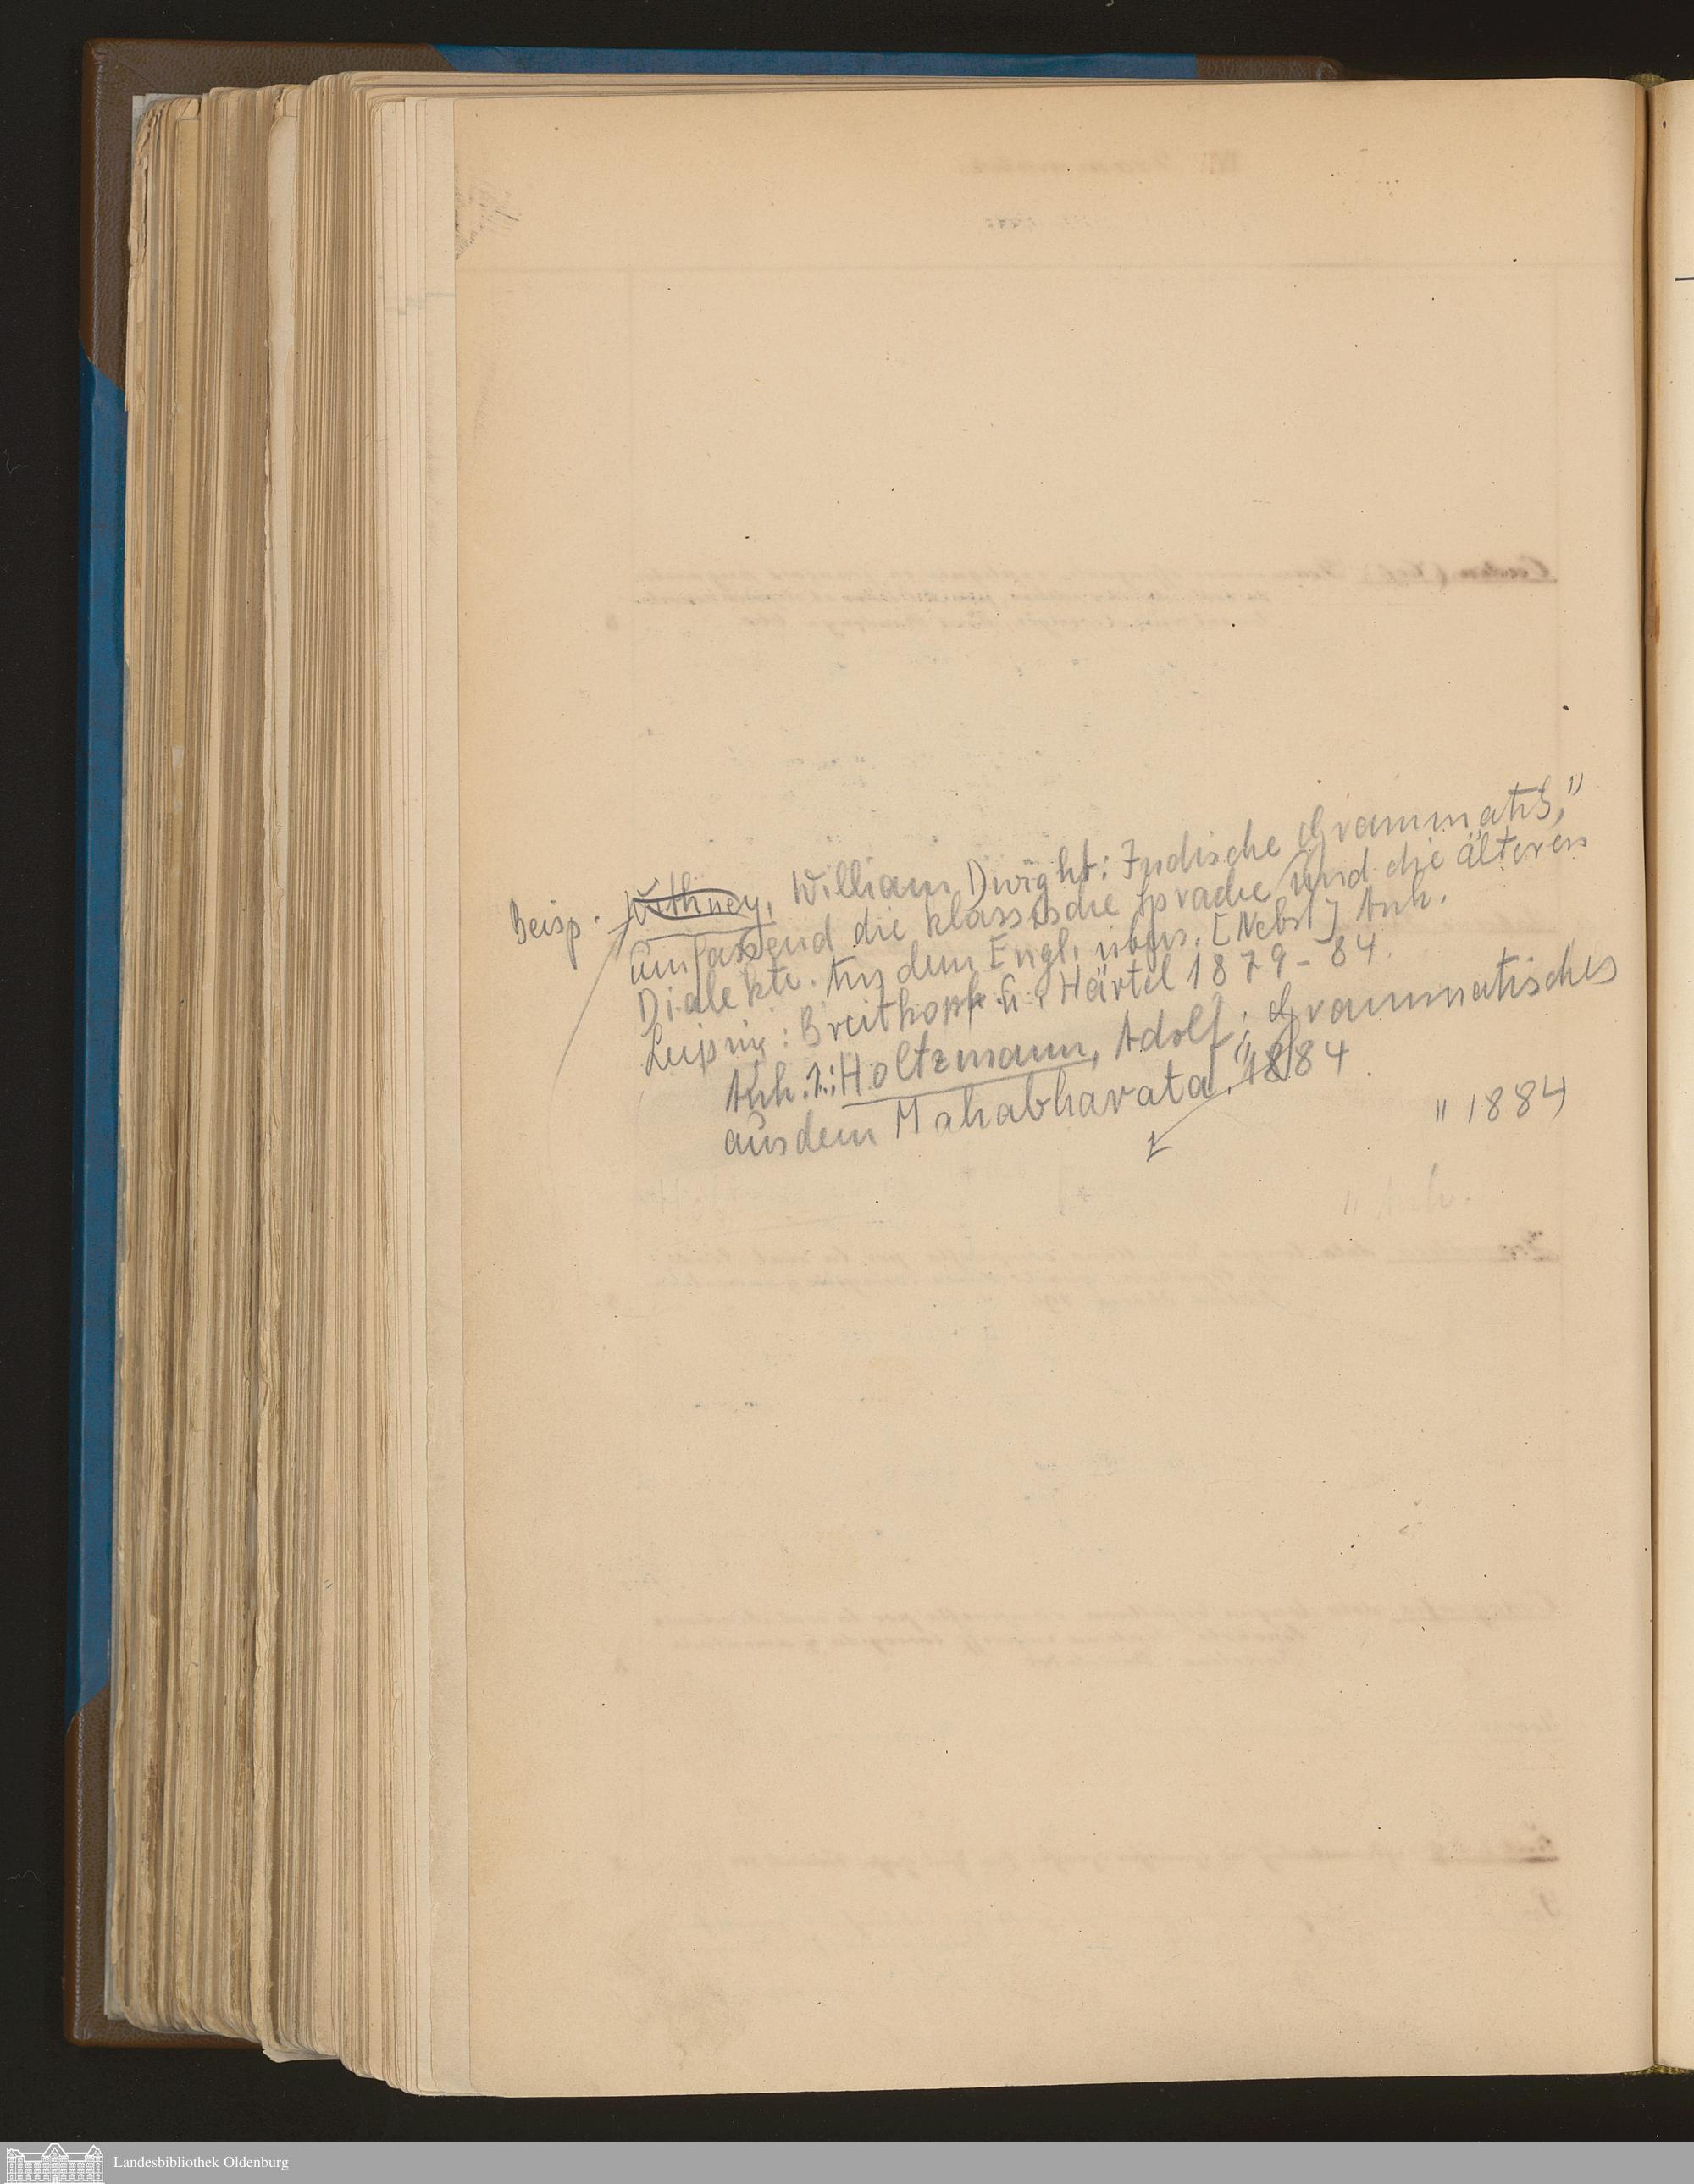 Beisp. Withney, William Dwight: Indische Grammatik, "
umfassend die klassische Sprache und die älteren
Dialekte. Aus dem Engl. übers. [Nebst] Anh.
Leipzig: Breitkopf u. Härtel 1879-84.
Anh. 1.: Holtzmann, Adolf: Grammatisches
aus dem Mahabharata. " 1884
" 1884
" Anh.
Landesbibliothek Oldenburg